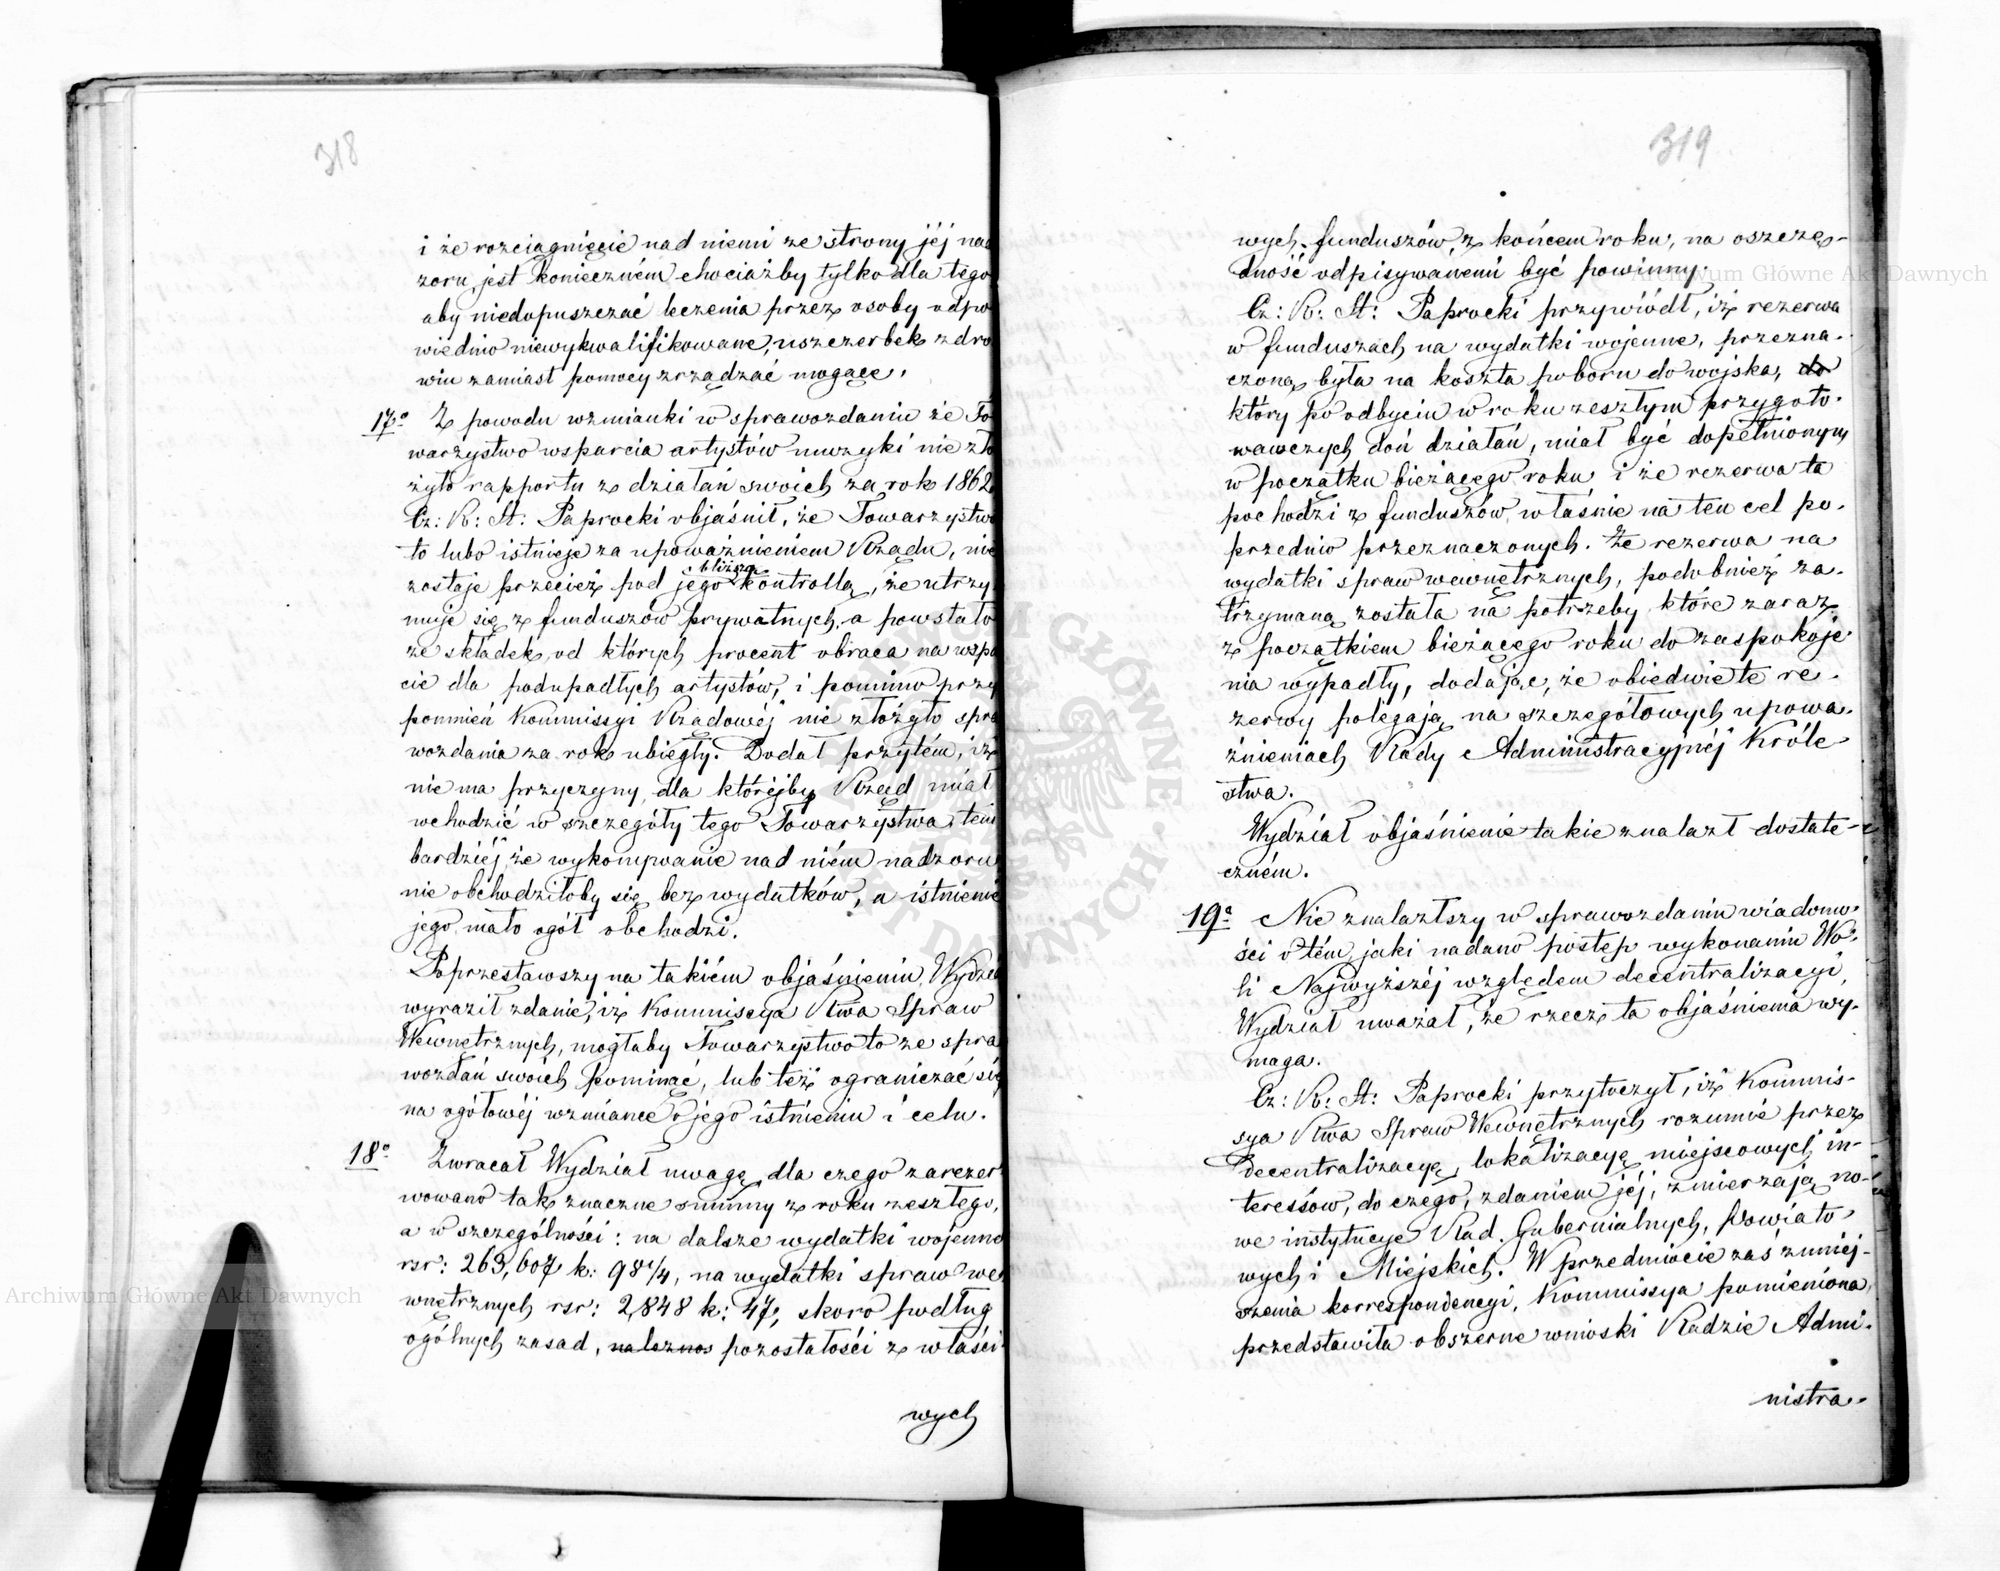 318
i że rozciągnięcie nad niemi ze strony jéj nad
zoru, jest konieczném chociażby tylko dla tego
aby niedopuszczać leczenia przez osoby odpo
wiednio niewykwalifikowane, uszczerbek zdro
wiu zamiast pomocy zrządzać mogące.
17º Z powodu wzmianki w sprawozdaniu że To
warzystwo wsparcia artystów muzyki nie zło
żyło rapportu z działań swoich za rok 1862
Cz: R: St: Paprocki objaśnił, że Towarzystwo
to lubo istnieje za upoważnieniem Rządu, nie
bliższą
zostaje przecież pod jego kontrollą, że utrzy
muje się z funduszów prywatnych, a powstało
ze składek, od których procent obraca na wspar
cie dla podupadłych artystów, i pomimo przy
pomnień Kommissyi Rządowéj nie złożyło spra
wozdania za rok ubiegły. Dodał przytém, iż
nie ma przyczyny, dla którejby Rząd miał
wchodzić w szczegóły tego Towarzystwa, tém
bardziéj, że wykonywanie nad niém nadzoru
nie obchodziłoby się bez wydatków, a istnienie
jego mało ogół obchodzi.
Poprzestawszy na takiém objaśnieniu, Wydział
wyraził zdanie, iż Kommissya Rwa Spraw
Wewnętrznych, mogłaby Towarzystwo to ze spra
wozdań swoich pominąć, lub też ograniczać się
na ogółowéj wzmiance o jego istnieniu i celu.
18º Zwracał Wydział uwagę, dla czego zarezer
wowano tak znaczne summy z roku zeszłego,
a w szczególności: na dalsze wydatki wojenne
rsr: 263,607 k: 98¼, na wydatki spraw we
wnętrznych rsr: 2,848 k: 47, skoro podług
ogólnych zasad, pozostałości z właści-
wych
319
wych funduszów, z końcem roku, na oszczę-
dność odpisywanemi być powinny.
Cz: R: St: Paprocki przywiódł, iż rezerwa
w funduszach na wydatki wojenne, przezna-
czoną była na koszta poboru do wojska, do
który po odbyciu w roku zeszłym przygoto-
wawczych doń działań, miał być dopełnionym
w początku bieżącego roku i że rezerwa ta
pochodzi z funduszów, właśnie na ten cel po-
przednio przeznaczonych. Że rezerwa na
wydatki spraw wewnętrznych, podobnież za-
trzymaną została na potrzeby które zaraz
z początkiem bieżącego roku do zaspokoje
nia wypadły, dodając, że obiedwie te re-
zerwy polegają na szczegółowych upowa-
żnieniach Rady Administracyjnéj Króle
stwa.
Wydział objaśnienie takie znalazł dostate-
czném.
19º Nie znalazłszy w sprawozdaniu wiadomo-
ści o tém, jaki nadano postęp wykonaniu Wo-
li Najwyższéj względem decentralizacyi,
Wydział uważał, że rzecz ta objaśnienia wy-
maga.
Cz: R: St: Paprocki przytoczył, iż Kommis-
sya Rwa Spraw Wewnętrznych rozumie przez
decentralizacyę, lokalizacyę miejscowych in-
teressów, do czego, zdaniem jéj, zmierzają no-
we instytucye Rad. Gubernialnych, Powiato-
wych i Miejskich. W przedmiocie zaś zmniej-
szenia korrespondencyi, Kommissya pomieniona,
przedstawiła obszerne wnioski Radzie Admi-
nistra-
Archiwum Główne Akt Dawnych
Archiwum Główne Akt Dawnych
ARCHIWUM GŁÓWNE AKT DAWNYCH